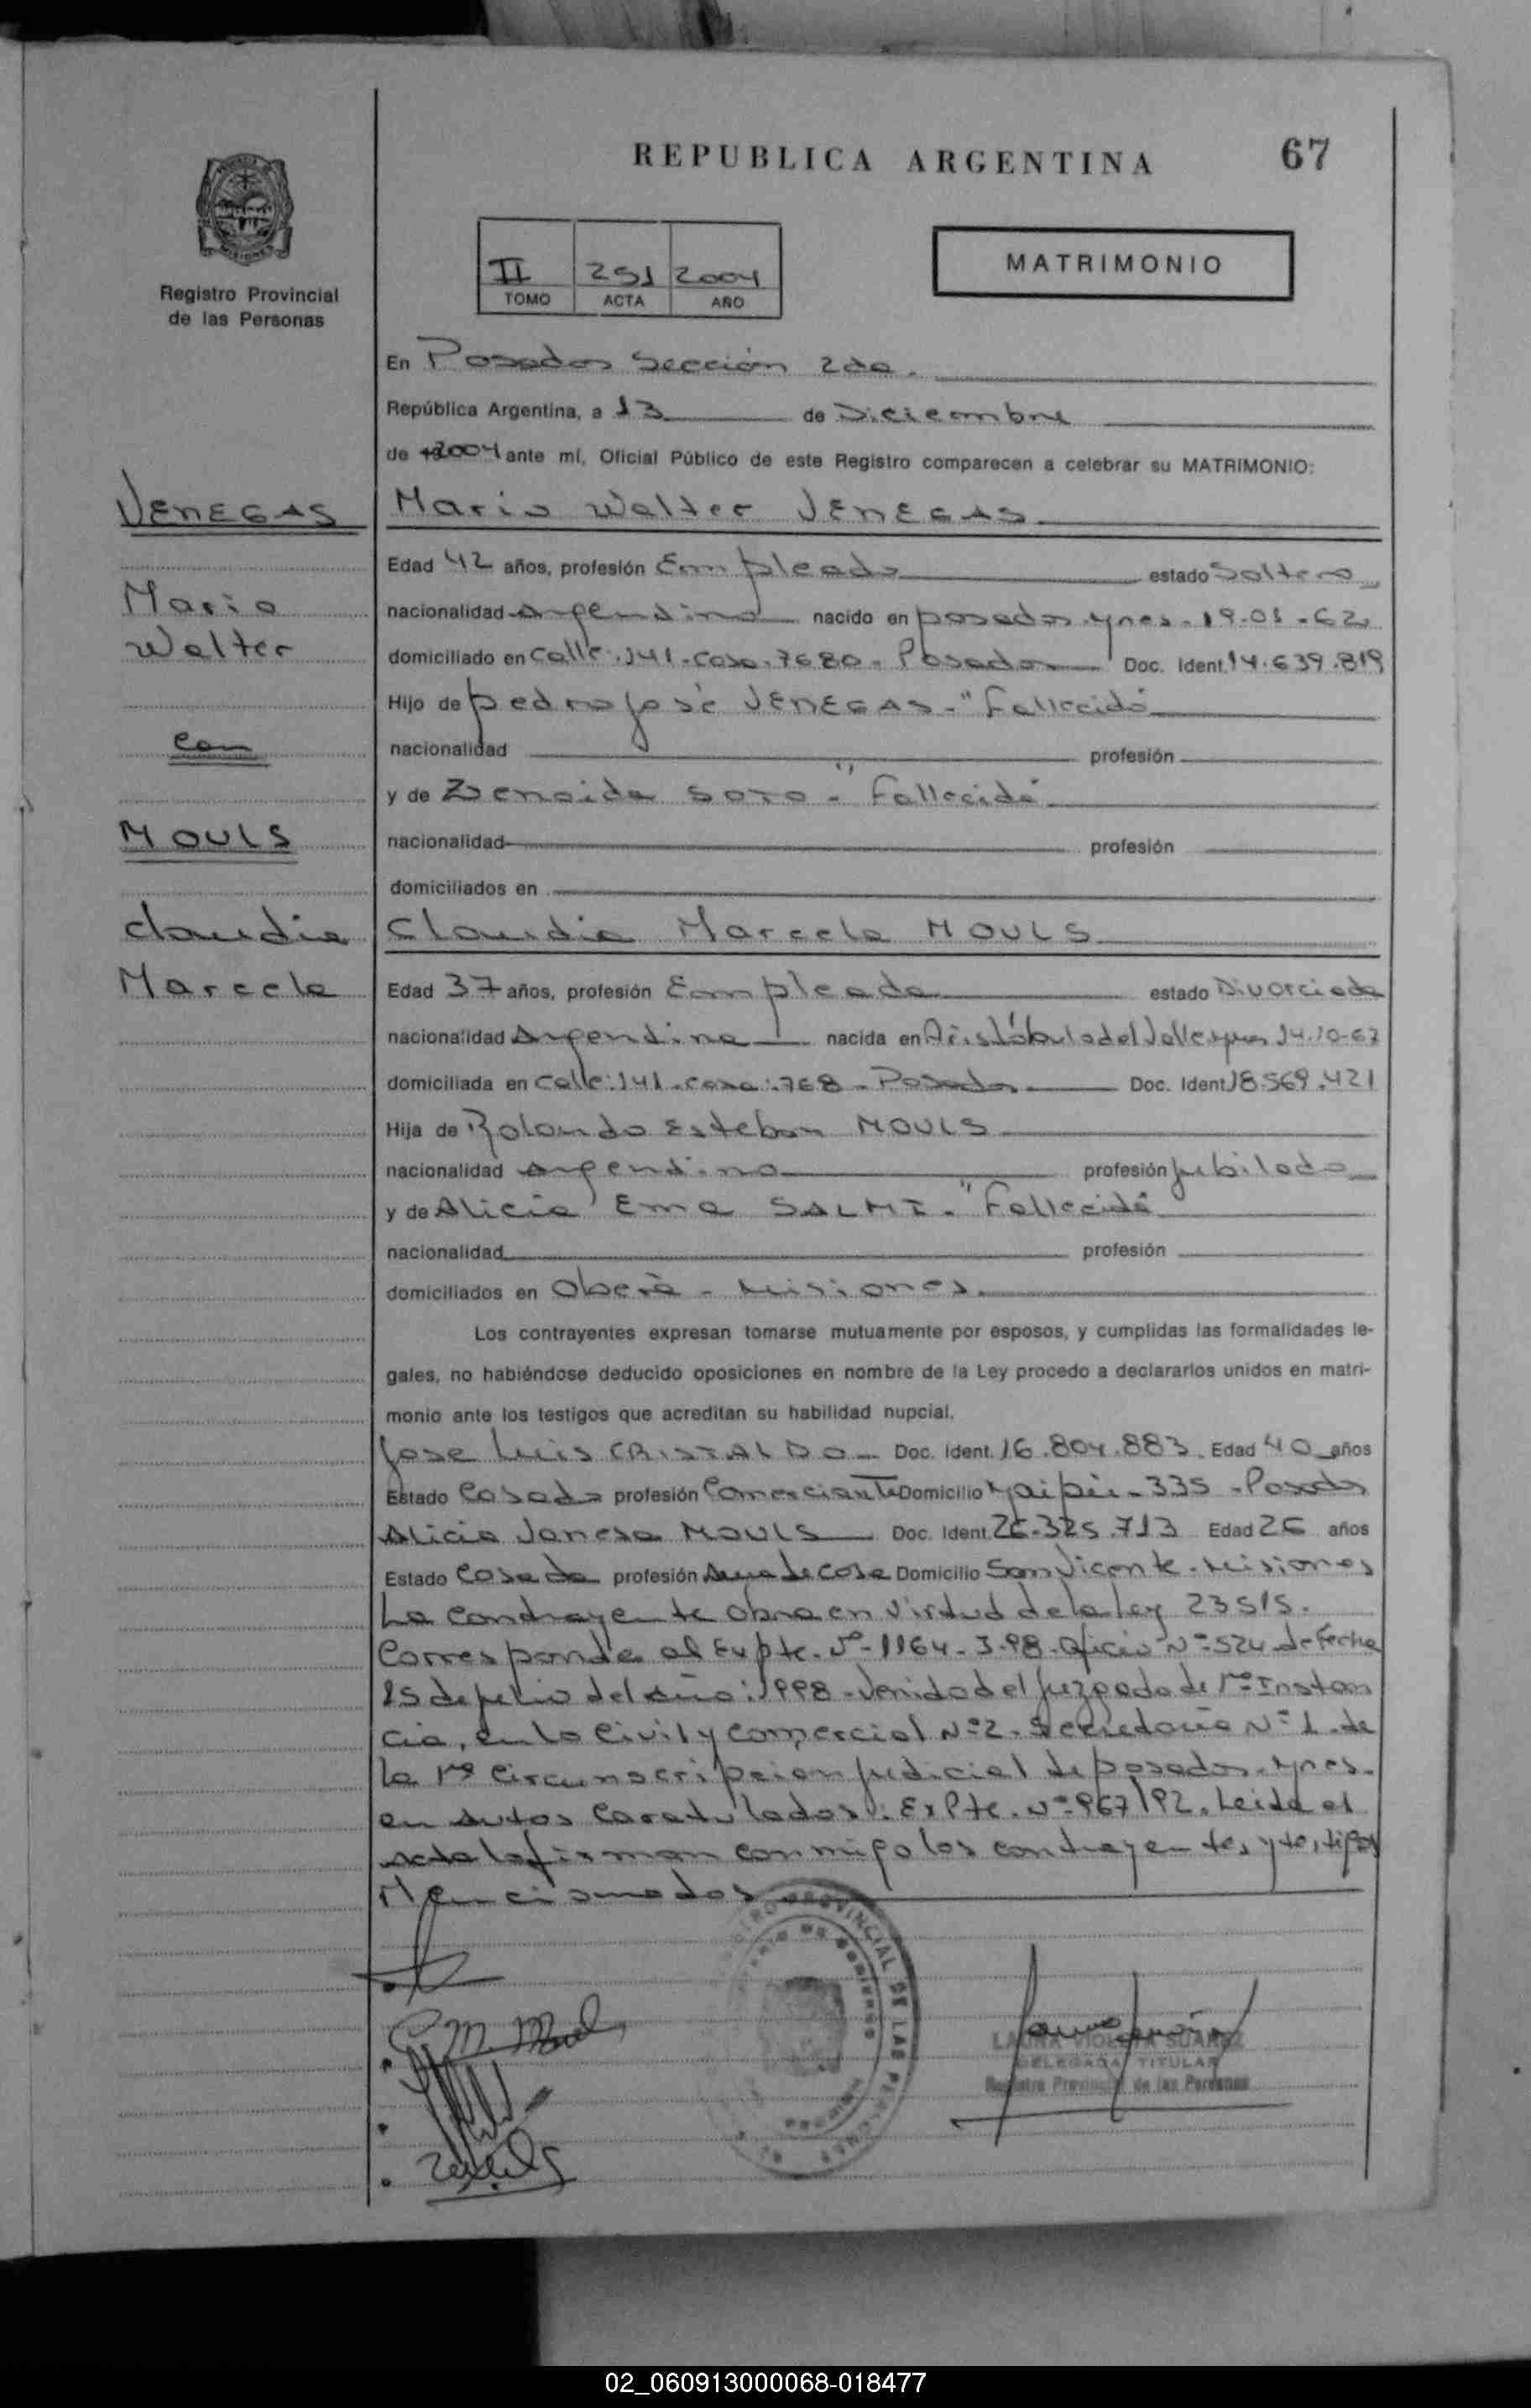 REPUBLICA ARGENTINA
67
II 251 2004
TOMO ACTA AÑO
MATRIMONIO
Registro Provincial
de las Personas
En Posadas Sección 2da.
República Argentina, a 13 de Diciembre
de 2004 ante mí, Oficial Público de este Registro comparecen a celebrar su MATRIMONIO:
VENEGAS
Mario
Walter
con
MOULS
Claudia
Marcela
Mario Walter VENEGAS
Edad 42 años, profesión Empleado estado Soltero
nacionalidad Argentino nacido en posadas mnes. 19.01.62
domiciliado en Calle:141-casa.7680- Posadas Doc. Ident. 14.639.819
Hijo de pedro josé VENEGAS-"Fallecido"
nacionalidad profesión
y de Zenaida SOTO-"Fallecida"
nacionalidad profesión
domiciliados en
Claudia Marcela MOULS
Edad 37 años, profesión Empleada estado Divorciada
nacionalidad Argentina nacida en Aristóbulo del Valle mnes 14.10-67
domiciliada en Calle:141-casa:768-Posadas Doc. Ident. 18.569.421
Hija de Rolando Esteban MOULS
nacionalidad Argentino profesión jubilado
y de Alicia Ema SALMI-"Fallecida"
nacionalidad profesión
domiciliados en Oberá - Misiones.
Los contrayentes expresan tomarse mutuamente por esposos, y cumplidas las formalidades le-
gales, no habiéndose deducido oposiciones en nombre de la Ley procedo a declararlos unidos en matri-
monio ante los testigos que acreditan su habilidad nupcial.
Jose Luis CRISTALDO Doc. Ident. 16.804.883 Edad 40 años
Estado Casado profesión Comerciante Domicilio Maipú-335-Posadas
Alicia Vanesa MOULS Doc. Ident. 26.325.713 Edad 26 años
Estado Casada profesión Ama de casa Domicilio San Vicente-Misiones
La contrayente obra en virtud de la ley 23515.
Corresponde al Expte. Nº-1164-J-98-Oficio Nº-524 de Fecha
15 de julio del año:1998-Venido del Juzgado de 1ª Instan
cia, en lo Civil y Comercial Nº2-Secretaria Nº1. de
la 1ª Circunscripcion judicial de posadas, mnes.
en Autos Caratulados: Expte. Nº-967/92. Leida el
acta la firman conmigo los contrayentes y testigos
Mencionados
C M Mouls
REGISTRO PROVINCIAL DE LAS PERSONAS
LAURA VIOLETA SUAREZ
DELEGADA TITULAR
Registro Provincial de las Personas
02_060913000068-018477